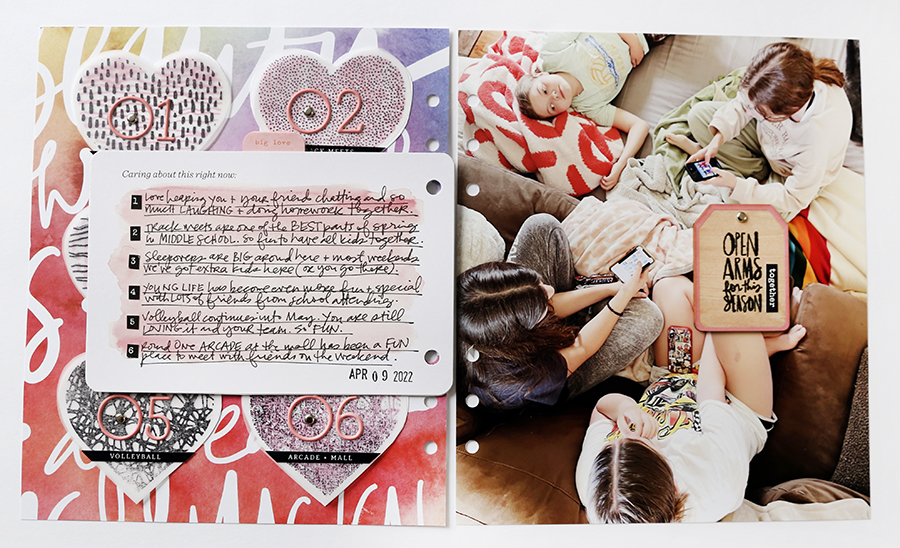 01
02
big love
CK MEETS
Caring about this right now:
1 love hearing you + your friend chatting and so
much LAUGHING + doing homework together.
2 track meets are one of the BEST parts of spring
in MIDDLE SCHOOL. so fun to have all kids together.
3 sleepovers are BIG around here + most weekends
we've got extra kids here (or you go there).
4 YOUNG LIFE has become even more fun + special
with LOTS of friends from school attending.
5 Volleyball continues into May. You are still
LOVING it and your team. So FUN.
6 ROUND ONE ARCADE at the mall has been a FUN
place to meet with friends on the weekend.
APR 09 2022
05
06
VOLLEYBALL
ARCADE • MALL
OPEN
ARMS
for this
SEASON
together